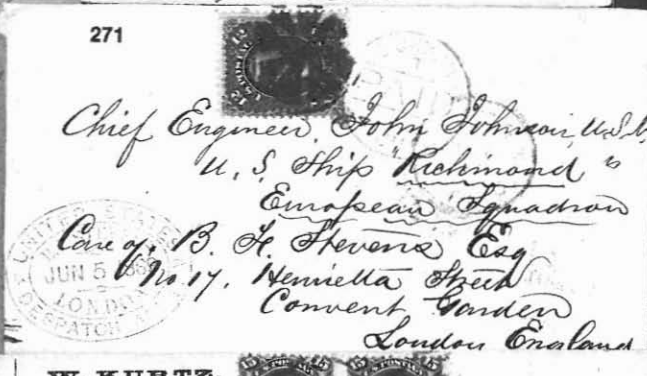 271
PAID
Chief Engineer, John Johnson, U.S.N.
U. S. Ship "Richmond"
European Squadron
Care of, B. F. Stevens Esq
No. 17, Henrietta Street
Convent Garden
London England
UNITED STATES
JUN 5
LONDON
DESPATCH
W. KURTZ